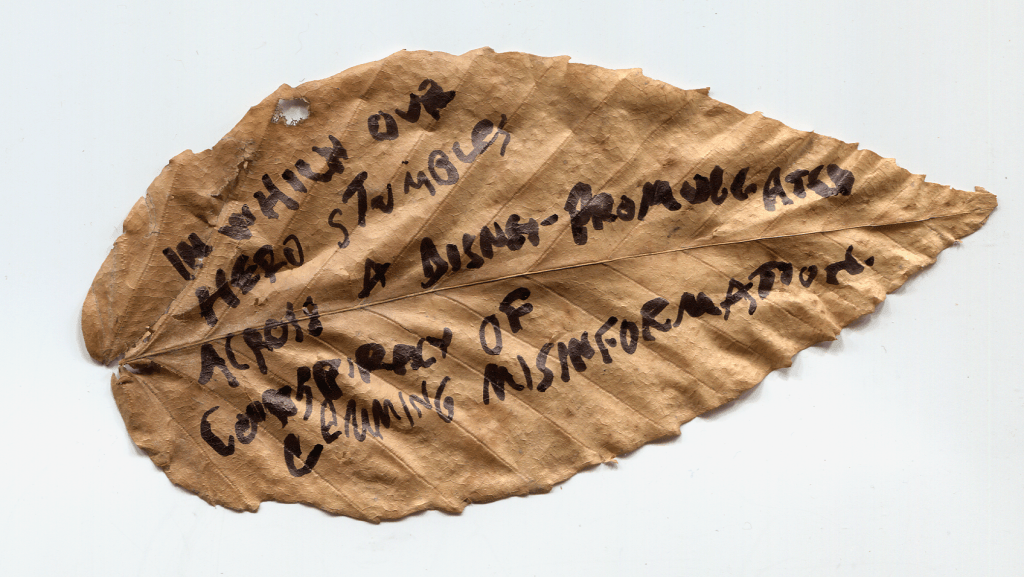 IN WHICH OUR
HERO STUMBLES
ACROSS A DISNEY-PROMULGATED
CONSPIRACY OF
LEMMING MISINFORMATION.